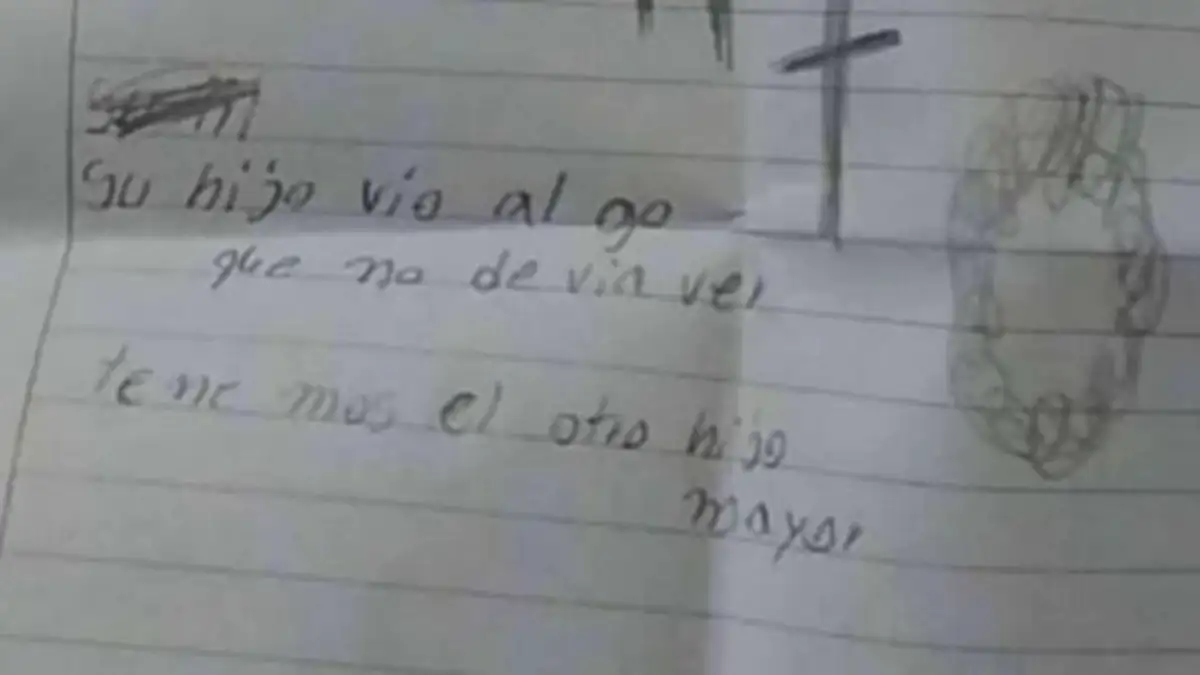 Su hijo vio al go
que no de via ver
tene mos el otro hijo
mayor